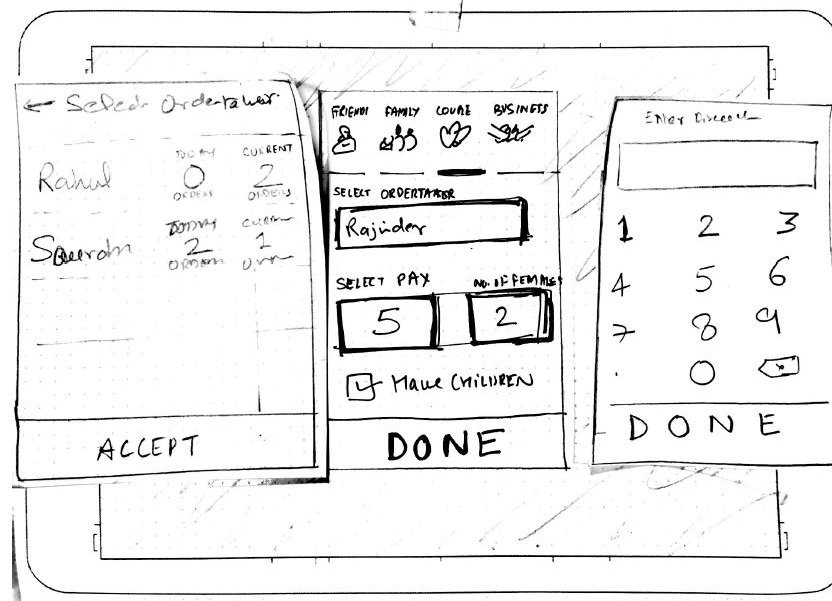 ← Select Ordertaker
Rahul
TODAY
0
ORDERS
CURRENT
2
ORDERS
Saurabh
TODAY
2
ORDERS
1
ACCEPT
FRIENDS FAMILY COUPLE BUSINESS
SELECT ORDERTAKER
Rajinder
SELECT PAX NO. OF FEMALES
5 2
Have CHILDREN
DONE
Enter Discount
1 2 3
4 5 6
7 8 9
. 0
DONE